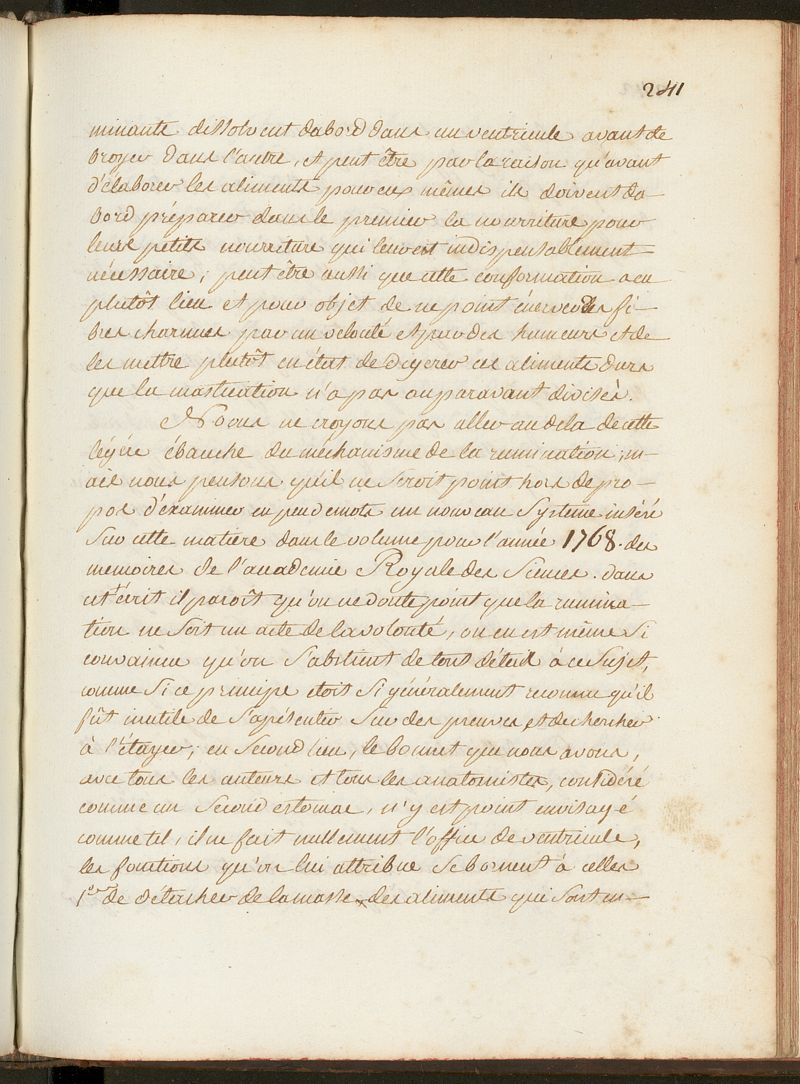 241
minants dissolvent dabord dans un ventricule avant de
broyer dans l'autre, et peut être par la raison qu'avant
d'élaborer les aliments pour eux mêmes ils doivent da-
bord préparer dans le premier la nourriture pour
leurs petits nourriture qui leur est indispensablement
nécessaire; peut être aussi que cette conformation a eu
plutôt lieu et pour objet de ne point énerver des fi-
bres charnues par un velouté et par des humeurs et de
les mettre plutôt en état de digerer ces aliments durs
que la mastication n'a pas auparavant divisés.
Nous ne croyons pas aller au dela de cette
légére ébauche du méchanisme de la rumination, m-
ais nous pensons qu'il ne seroit point hors de pro-
pos d'éxaminer en peu de mots un nouveau systême inséré
sur cette matière dans le volume pour l'année 1768. des
mémoires de l'académie Royale des Siences. dans
cet écrit il paroît qu'on ne doute point que la rumina-
tion ne soit un acte de la volonté, on en est même si
convaincu qu'on s'abstient de tout détail à ce sujet,
comme si ce principe étoit si généralement reconnu qu'il
fût inutile de s'apésentir sur des preuves et de chercher
à l'étayer; en second lieu, le bonnet que nous avons,
avec tous les auteurs et tous les anatomistes, considéré
comme un second estomac, n'y est point envisagé
comme tel, il ne fait nullement l'office de ventricule,
les fonctions qu'on lui attribue se bornent à celles
1er de détacher de la masse des aliments qui sont en-